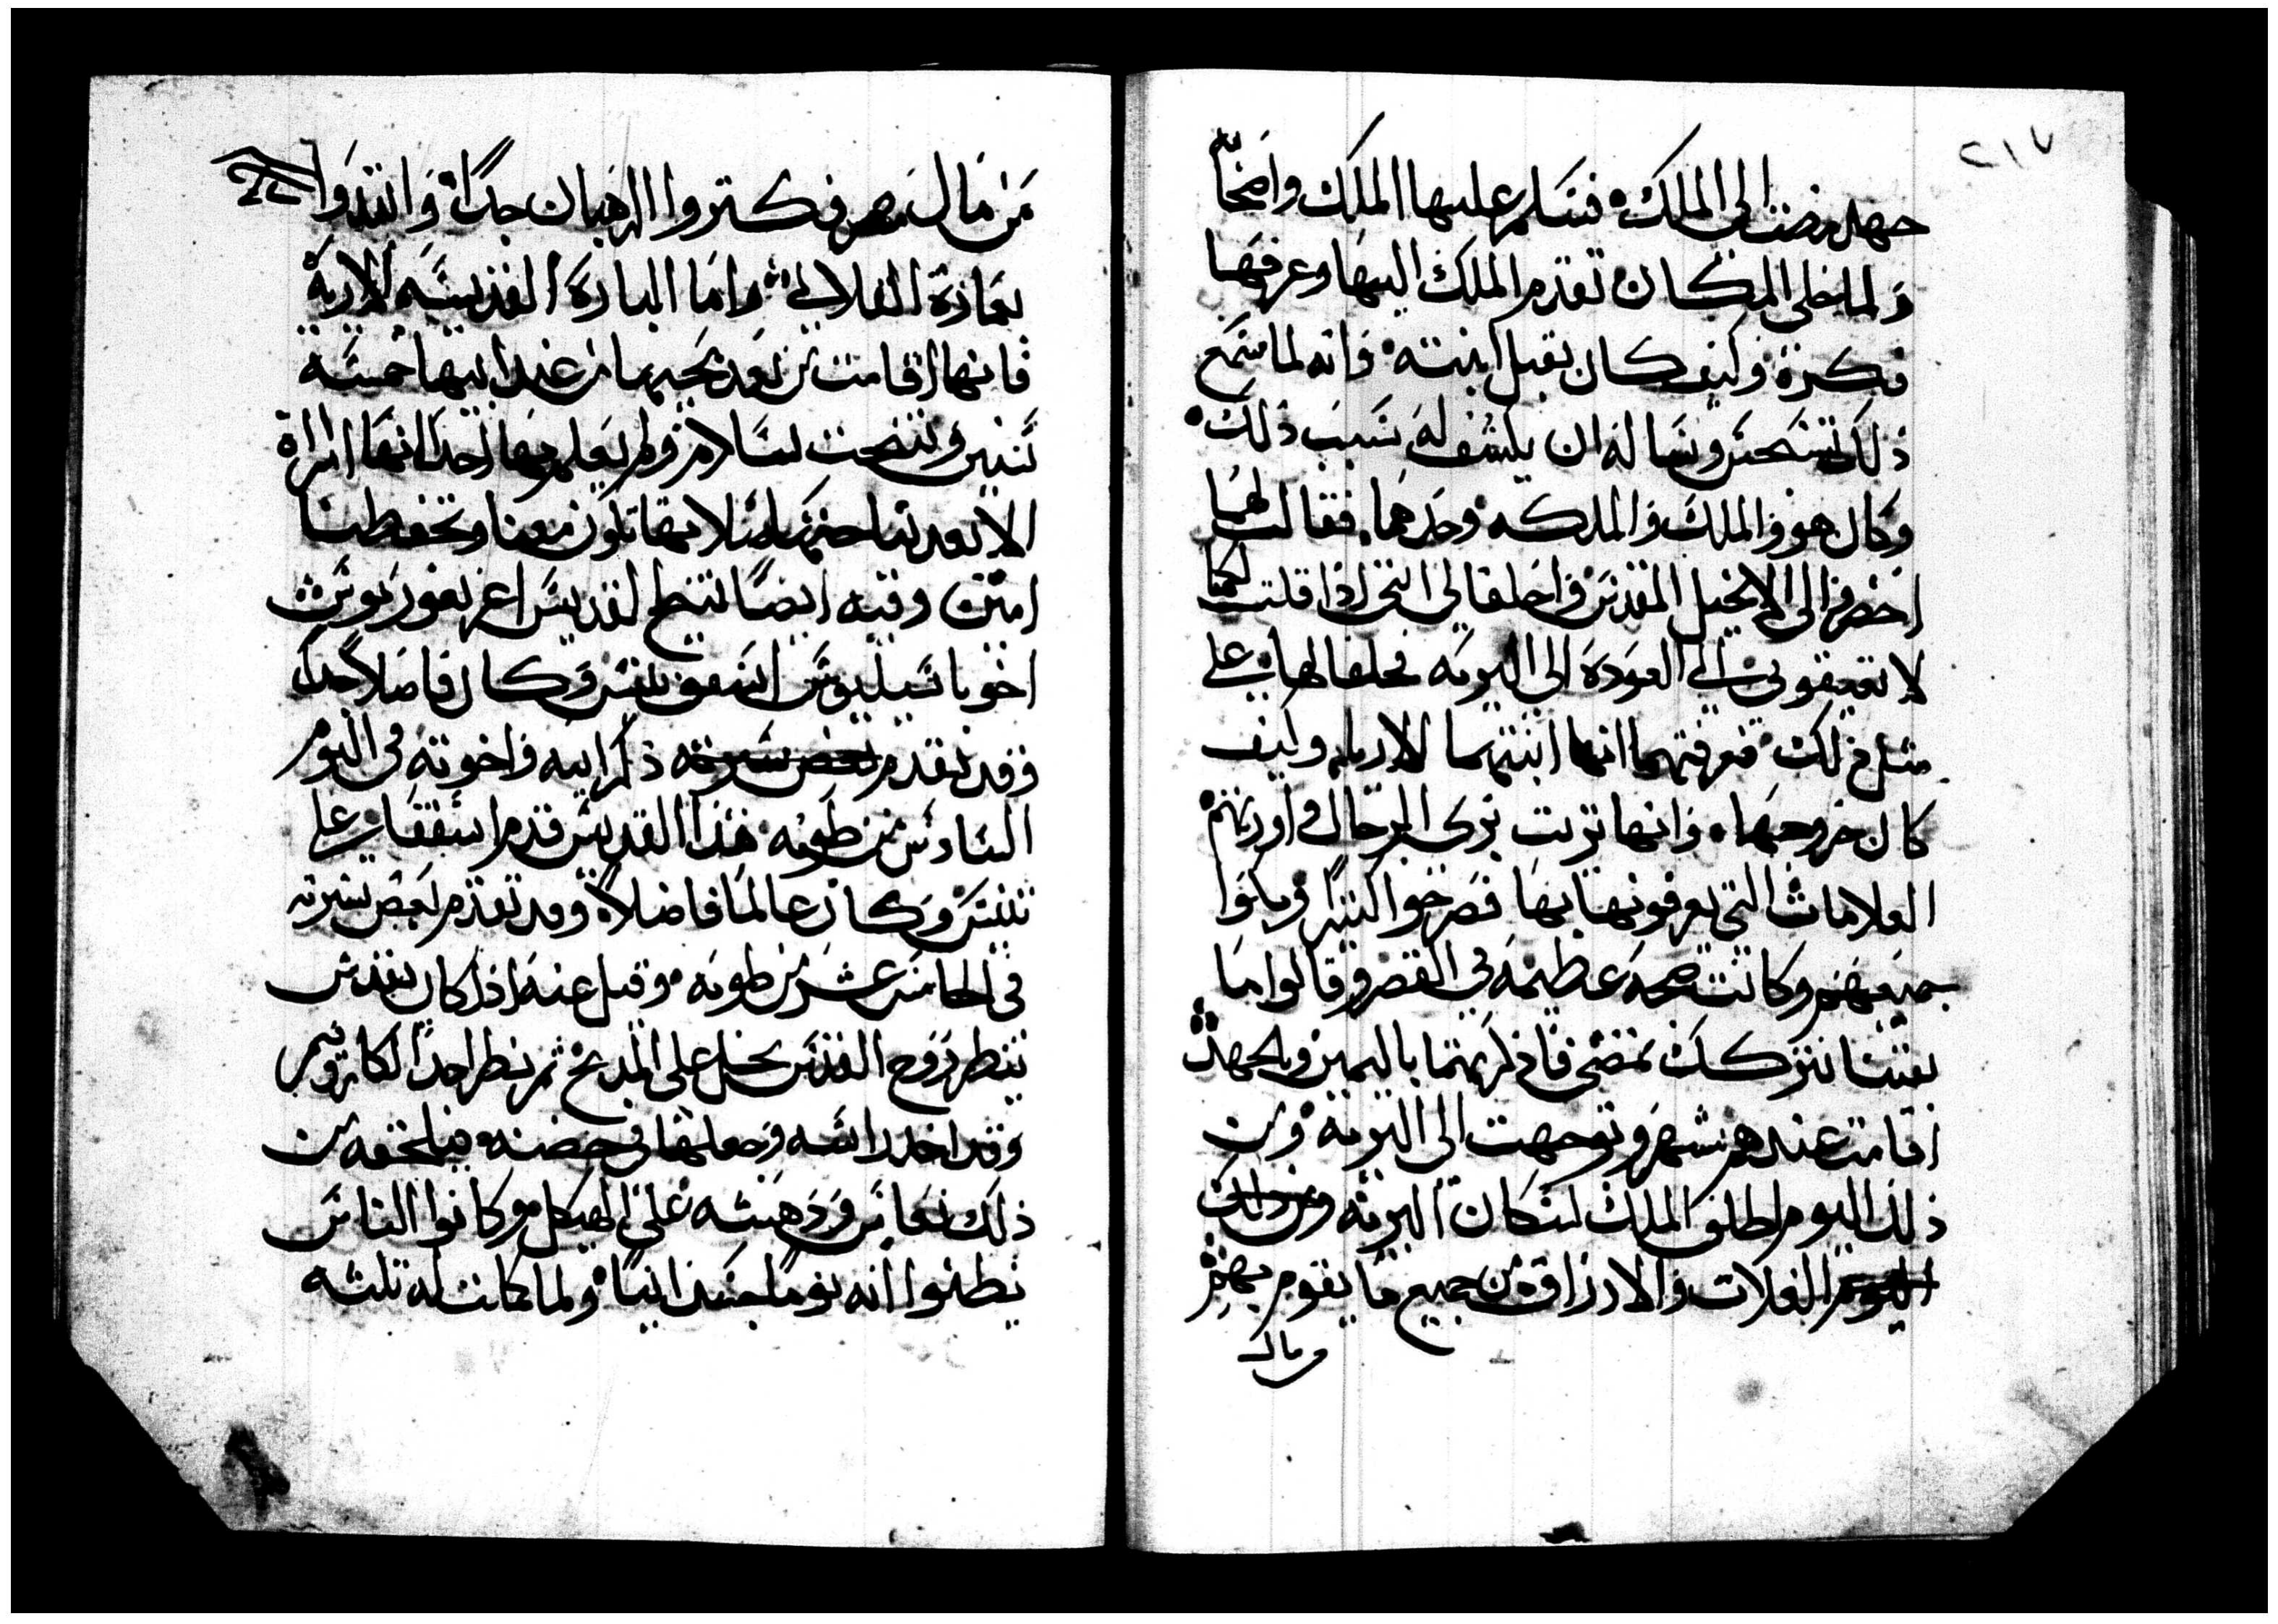 ٢١٧
جهد مضت الي الملك فسلم عليها الملك واضخا
ولما خلي المكان تقدم الملك اليها وعرفها
فكره وكيف كان يقبل ابنته وانه لما سمع
ذلك وساله ان يكشف له سبب ذلك
وكان هو والملك والملكه وحدهما فقالت لهما
احضروا الي الانجيل المقدس واحلفا لي انني اذا قلت لكما
لا تعيقوني عن العودة الى البريه فحلفا لها علي
مثل ذلك فعرفتهما انها ابنتهما الاريه وكيف
كان خروجها وانها تزيت بزي الرجال واورتهم
العلامات التي يعرفونها بها فصرخوا كثيرا وبكوا
جميعهم وكانت ضجه عظيمه في القصر وقالوا ما
بقينا نتركك تمضي فاذكرتهما باليمين وبالجهد
اقامت عندهم شهر وتوجهت الى البريه ومن
ذلك اليوم اطلق الملك لسكان البريه ومن ذلك
اليوم الغلات والارزاق من جميع ما يقوم بهم
من مال
من مال مصر فكتروا الرهبان جدا وانتدوا
بعمارة القلالي واما الباره القديسه الاريه
فانها اقامت من بعد مجيها من عند ابيها خمسه
سنين وتنيحت بسلام ولم يعلم بها احد انها امراة
الا بعد نياحتها صلاتها تكون معنا وتحفظنا
امين وفيه ايضا تنيح القديس اغريغوريوس
اخو باسيليوس اسقف نيسس وكان فاضلا جدا
وقد تقدم بعض سيرته ذكر ابيه واخوته في اليوم
السادس من طوبه هذا القديس قدم اسقفا علي
نيسس وكان عالما فاضلا وقد تقدم بعض سيرته
في الخامس عشر من طوبه وقيل عنه اذا كان يقدس
ينظر روح القدس يحل على المدبح ثم ينظر احد الكاروبيم
وقد اخد راسه وجعلها في حضنه فيلحقه من
ذلك نعاس ودهشه على الهيكل وكانوا الناس
يظنوا انه نوما جسدانيا ولما كانت له تلته